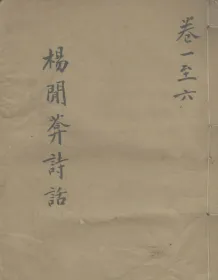 卷一至六
楊閒菴詩話